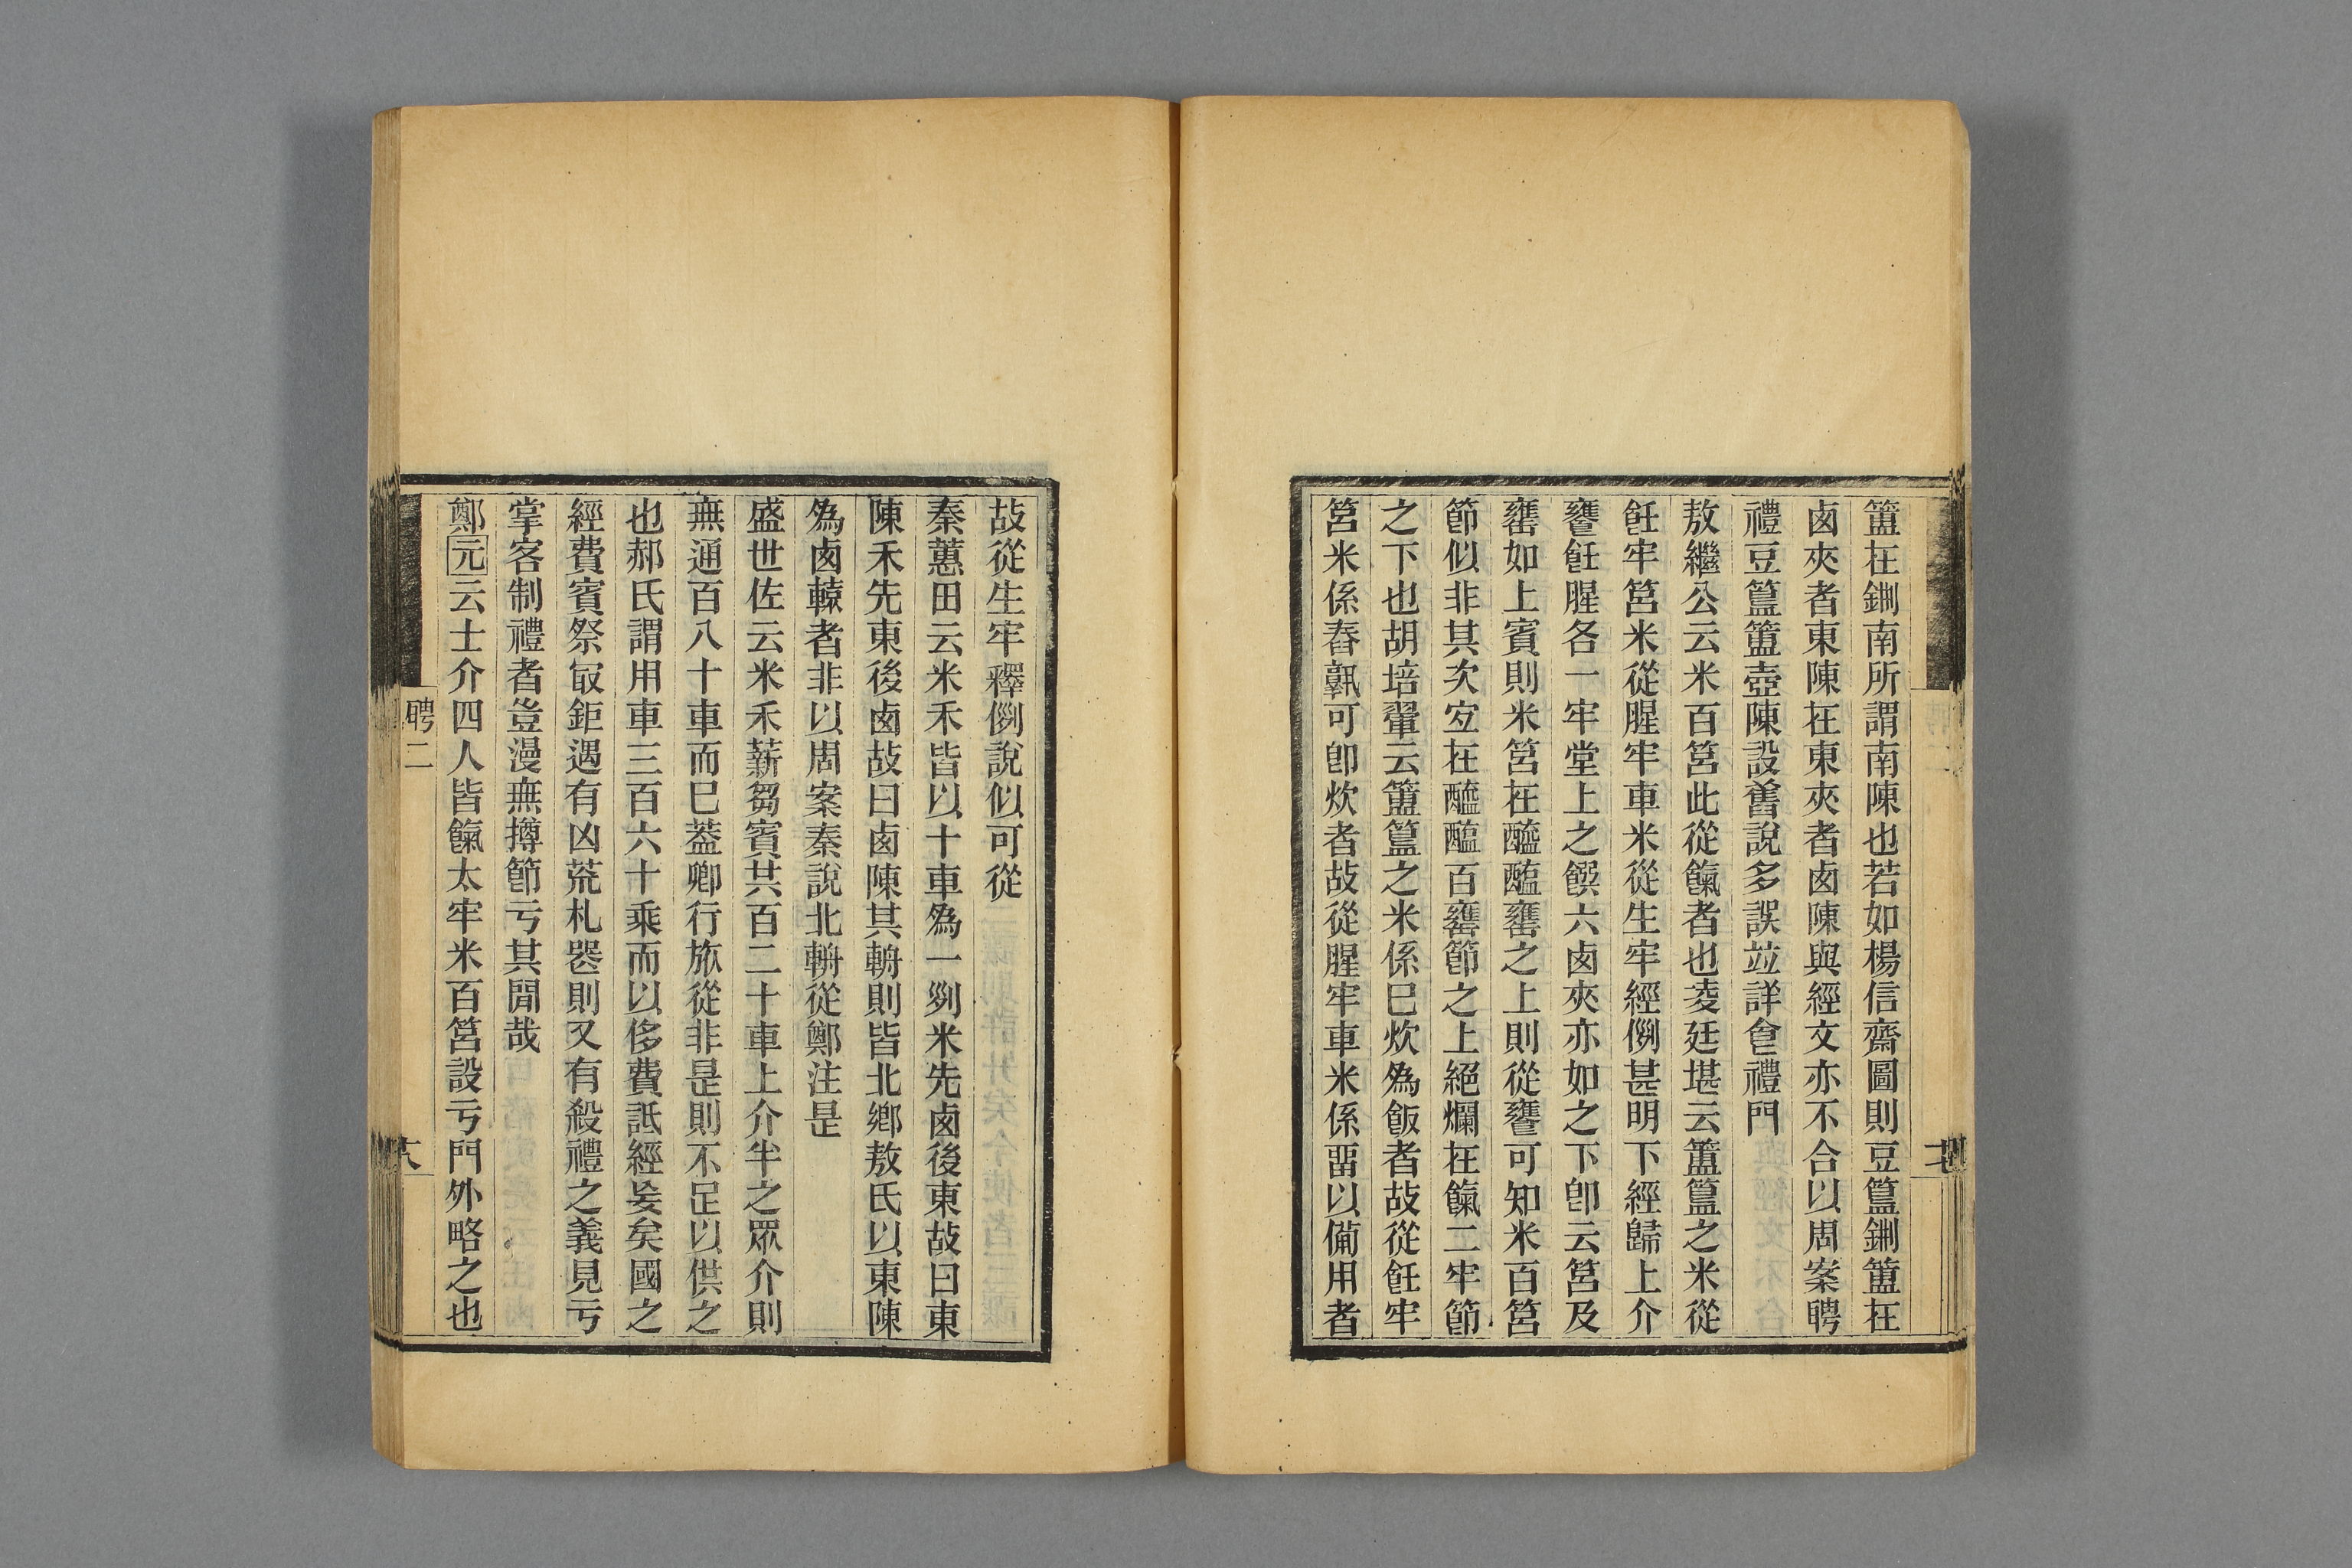 簠在鉶南所謂南陳也若如楊信齋圖則豆簋鉶簠在
鹵夾者東陳在東夾者鹵陳與經文亦不合以周案聘
禮豆簋簠壺陳設舊說多誤竝詳㑹禮門
敖繼公云米百筥此從餼者也凌廷堪云簠簋之米從
飪牢筥米從腥牢車米從生牢經例甚明下經歸上介
饔飪腥各一牢堂上之饌六鹵夾亦如之下卽云筥及
罋如上賓則米筥在醯醢罋之上則從饔可知米百筥
節似非其次宐在醯醢百罋節之上絕爛在餼二牢節
之下也胡培翬云簠簋之米係巳炊爲飯者故從飪牢
筥米係舂孰可卽炊者故從腥牢車米係畱以備用者
故從生牢釋例說似可從
秦蕙田云米禾皆以十車爲一列米先鹵後東故曰東
陳禾先東後鹵故曰鹵陳其輈則皆北鄉敖氏以東陳
爲鹵轅者非以周案秦說北輈從鄭注是
盛世佐云米禾薪芻賓共百二十車上介半之眾介則
無通百八十車而巳葢卿行旅從非是則不足以供之
也郝氏謂用車三百六十乘而以侈費詆經妄矣國之
經費賓祭㝡鉅遇有凶荒札喪則又有殺禮之義見亏
掌客制禮者豈漫無撙節亏其閒哉
鄭元云士介四人皆餼太牢米百筥設亏門外略之也
聘二
十八